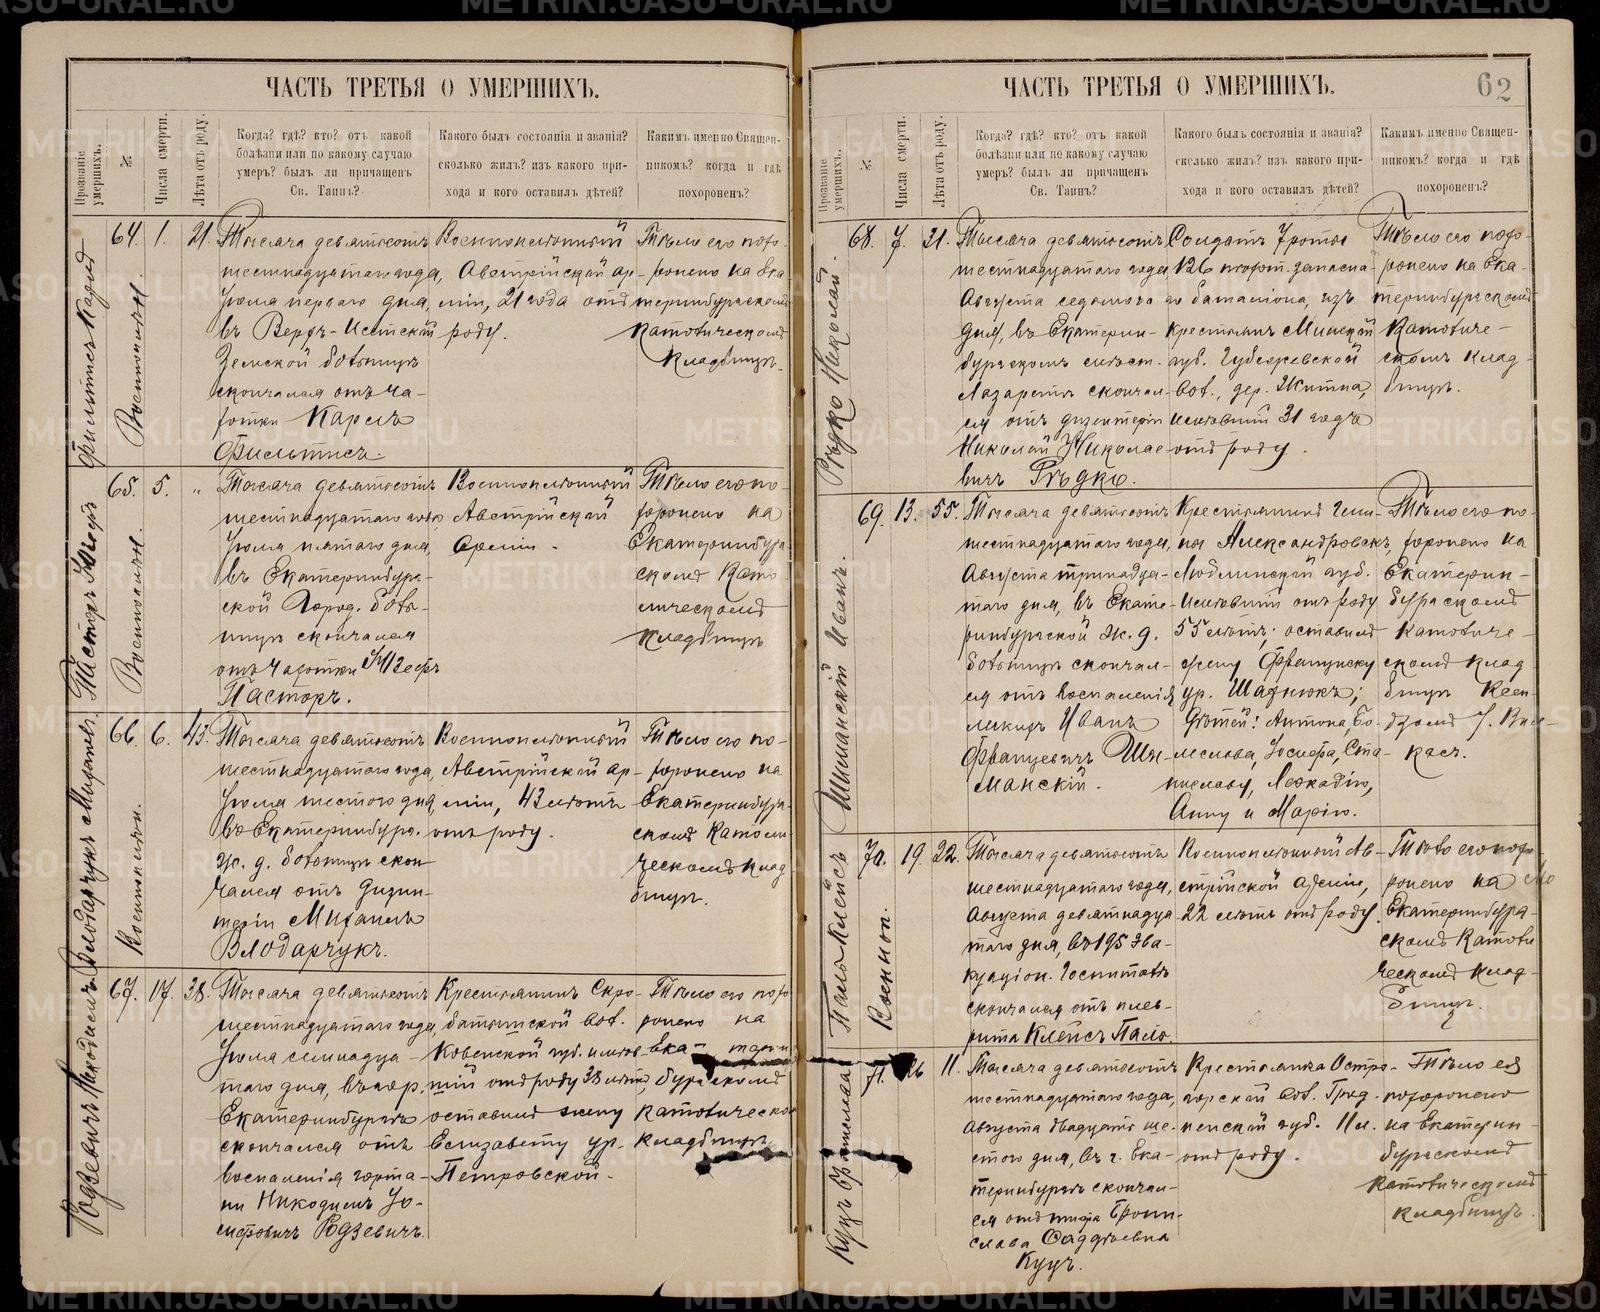 ЧАСТЬ ТРЕТЬЯ О УМЕРШИХЪ.
Прозваніе умершихъ.
№
Числа смерти.
Лѣта отъ роду.
Когда? гдѣ? кто? отъ какой
болѣзни или по какому случаю
умеръ? былъ ли причащенъ
Св. Таинъ?
Какого былъ состоянія и званія?
сколько жилъ? изъ какого при-
хода и кого оставилъ дѣтей?
Какимъ именно Священ-
никомъ? когда и гдѣ
похороненъ?
Фильтисъ Карлъ
Военноплѣн.
64. 1. 21.
Тысяча девятьсотъ
шестнадцатаго года,
Іюля перваго дня,
въ Верхъ-Исетской
Земской больницѣ
скончался отъ ча-
хотки Карлъ
Фильтисъ.
Военноплѣнный
Австрійской ар-
міи, 21 года отъ
роду.
Тѣло его похо-
ронено на Ека
теринбургскомъ
Католическомъ
Кладбищѣ.
Пасторъ Іозефъ
Военноплѣн.
65. 5. "
Тысяча девятьсотъ
шестнадцатаго года
Іюля пятаго дня,
въ Екатеринбург-
ской Город. боль-
ницѣ скончался
отъ чахотки Іозефъ
Пасторъ.
Военноплѣнный
Австрійской
Арміи.
Тѣло его по-
хоронено на
Екатеринбург-
скомъ Като-
лическомъ
Кладбищѣ
Влодарчукъ Михаилъ.
Военноплѣн.
66. 6. 43.
Тысяча девятьсотъ
шестнадцатаго года,
Іюля шестого дня,
въ Екатеринбург.
ж. д. больницѣ скон
чался отъ дизен-
теріи Михаилъ
Влодарчукъ.
Военноплѣнный
Австрійской ар-
міи, 43 лѣтъ
отъ роду.
Тѣло его по-
хоронено на
Екатеринбург-
скомъ Католи
ческомъ клад
бищѣ.
Родзевичъ Никодимъ
67. 17. 38.
Тысяча девятьсотъ
шестнадцатаго года,
Іюля семнадца-
таго дня, въ гор.
Екатеринбургѣ
скончался отъ
воспаленія горта-
ни Никодимъ Іо-
сифовичъ Родзевичъ.
Крестьянинъ Скро-
ботынской вол.
Ковенской губ. имѣв-
шій отъ роду 38 лѣтъ,
оставилъ жену
Елизавету ур.
Петровской.
Тѣло его похо
ронено на
Ека- терин
бургскомъ
Католическо
кладбищѣ
ЧАСТЬ ТРЕТЬЯ О УМЕРШИХЪ.
62
Прозваніе умершихъ.
№
Числа смерти.
Лѣта отъ роду.
Когда? гдѣ? кто? отъ какой
болѣзни или по какому случаю
умеръ? былъ ли причащенъ
Св. Таинъ?
Какого былъ состоянія и званія?
сколько жилъ? изъ какого при-
хода и кого оставилъ дѣтей?
Какимъ именно Священ-
никомъ? когда и гдѣ
похороненъ?
Рѣдко Николай.
68. 7. 31.
Тысяча девятьсотъ
шестнадцатаго года
Августа седьмого
дня, въ Екатерин-
бургскомъ мѣст.
Лазаретѣ скончал-
ся отъ дизентеріи
Николай Николае-
вичъ Рѣдко.
Солдатъ 7 роты
126 пѣхот. запасна-
го баталіона, изъ
крестьянъ Минской
губ.
вол., дер. Житна,
имѣвшій 31 годъ
отъ роду.
Тѣло его похо-
ронено на Ека-
теринбургскомъ
Католиче-
скомъ клад-
бищѣ.
Шиманскій Иванъ.
69. 13. 55.
Тысяча девятьсотъ
шестнадцатаго года,
Августа тринадца-
таго дня, въ Екате-
ринбургской ж. д.
больницѣ скончал-
ся отъ воспаленія
легкихъ Иванъ
Францевичъ Ши-
манскій.
Крестьянинъ гми-
ны Александровскъ,
Люблинской губ.
имѣвшій отъ роду
55 лѣтъ; оставилъ
жену Францишку
ур. Шафнюкъ;
дѣтей: Антона, Бо-
леслава, Іосифа, Ста-
ниславу, Леокадію,
Анну и Марію.
Тѣло его по-
хоронено на
Екатерин-
бургскомъ
Католиче-
скомъ клад
бищѣ Ксен-
дзомъ
Паль Клейсъ
Военноп.
70. 19. 22.
Тысяча девятьсотъ
шестнадцатаго года,
Августа девятнадца
таго дня, въ 195 Эва-
куаціон. Госпиталѣ
скончался отъ плев-
рита Клейсъ Паль.
Военноплѣнный Ав-
стрійской арміи,
22 лѣтъ отъ роду.
Тѣло его похо
ронено на
Екатеринбург-
скомъ Католи
ческомъ клад-
бищѣ.
Куцъ Бронислава
71. 26 11.
Тысяча девятьсотъ
шестнадцатаго года,
Августа двадцать ше-
стого дня, въ г. Ека-
теринбургѣ скончал-
ся отъ тифа Брони-
слава Фаддѣевна
Куцъ.
Крестьянка Остро-
горской вол. Грод-
ненской губ. 11 л.
отъ роду.
Тѣло ея
похоронено
на Екатерин-
бургскомъ
Католическомъ
кладбищѣ.
METRIKI.GASO-URAL.RU